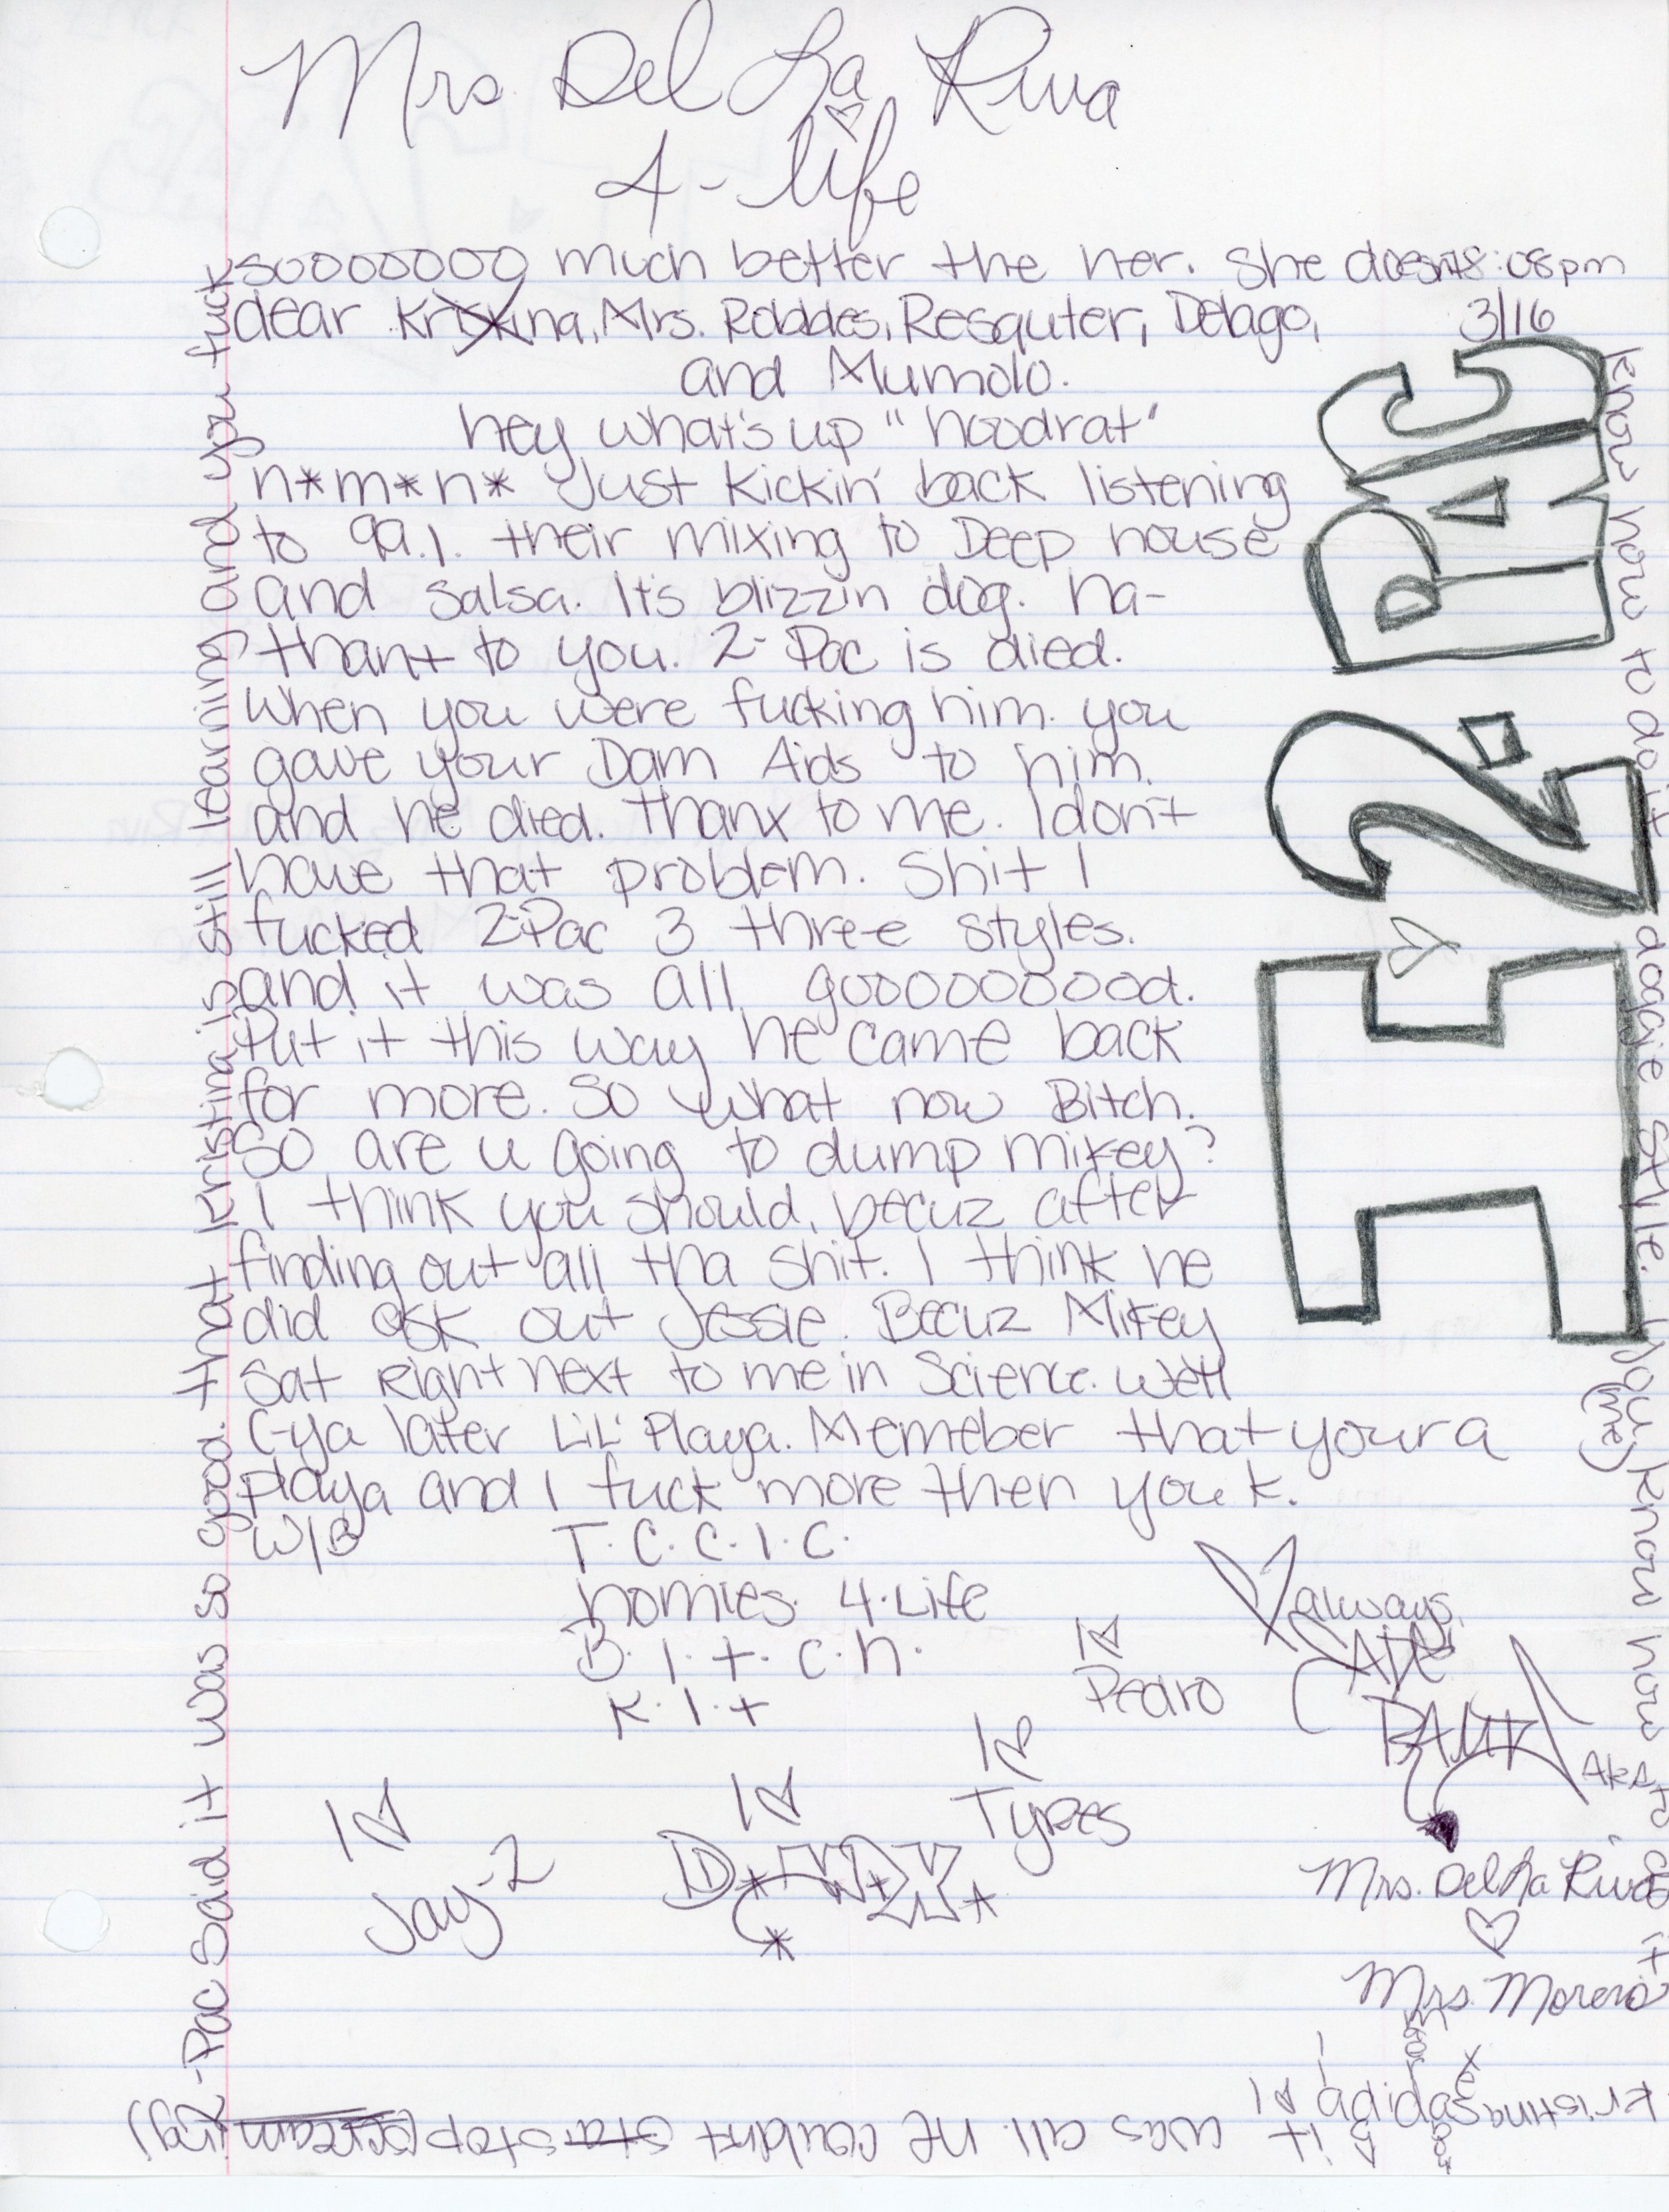 Mrs. Del La Riva
4-life
soooooooo much better the her. She doesnt 8:08pm
dear Kristina, Mrs. Robbles, Resauter, Delago, 3/16
and Mumolo.
hey what's up "hoodrat"
n*m*h* Just Kickin' back listening
to 99.1. their mixing to Deep house
and salsa. It's blizzin dog. ha-
thant to you. 2-Pac is died.
When you were fucking him. you
gave your Dam Aids to him.
and he died. thanx to me. I don't
have that problem. Shit I
fucked 2-Pac 3 three styles.
and it was all gooooooood.
Put it this way he came back
for more. So what now Bitch.
So are u going to dump mikey?
I think you should, becuz after
finding out all tha shit. I think he
did ask out Jessie. Becuz Mikey
sat Right next to me in Science. Well
C-ya later Lil' Playa. Memeber that your a
playa and I fuck more then you k.
W/B T.C.C.I.C.
homies. 4.Life
B.I.t.c.h.
K.I.t
always,
I ♡
Pedro
I ♡
Types
I ♡
Jay-Z
I ♡
AKA
Mrs. Del La Riva
♡
Mrs. Moreno
I ♡ 2 PAC
know how to do it doggie stile. You know how to do it
(me)
Kristina
I ♡ adidas
it was all. he couldnt sta stop (screaming)
2-Pac said it was so good. that Kristina is still learning and you fuck